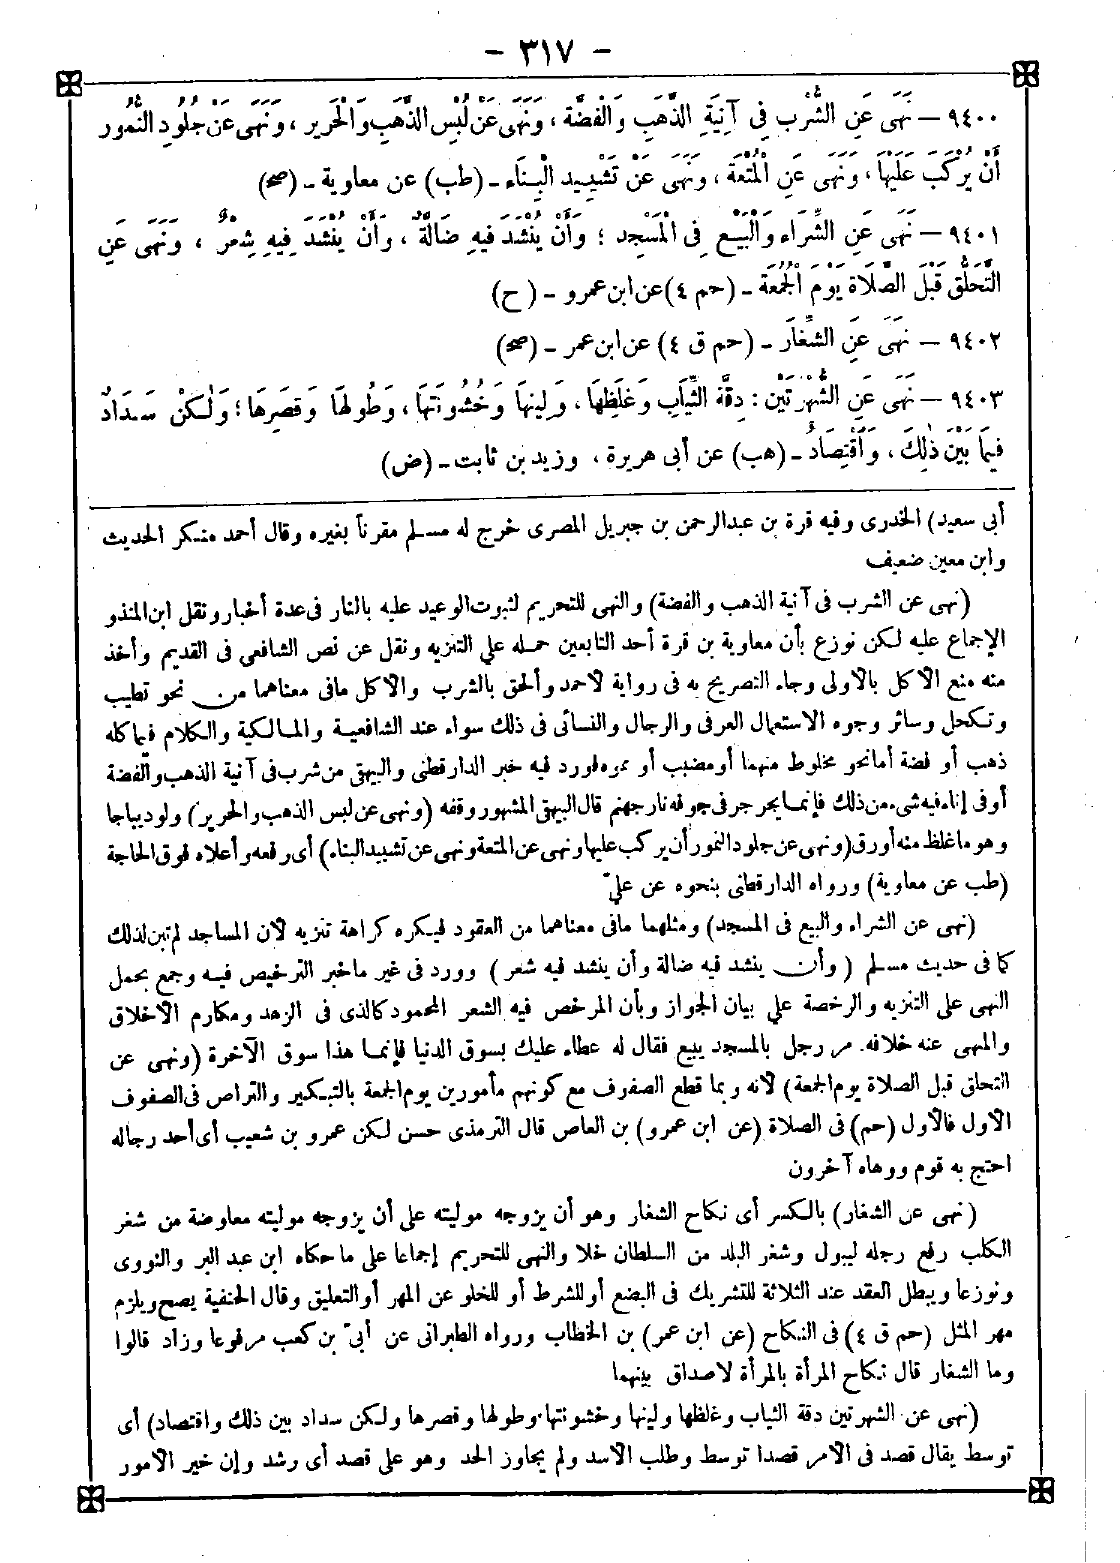 – ٣١٧ –
٩٤٠٠ – نَهَى عَنِ الشُّرْبِ فِى آنِيَةِ الذَّهَبِ وَالْفِضَّةِ ، وَنَهَى عَنْ لُبْسِ الذَّهَبِ وَالْحَرِيرِ ، وَنَهَى عَنْ جُلُودِ النُّمُورِ
أَنْ يُرْكَبَ عَلَيْهَا ، وَنَهَى عَنِ الْمُتْعَةِ ، وَنَهَى عَنْ تَشْيِيدِ الْبِنَاءِ – (طب) عن معاوية – (صح)
٩٤٠١ – نَهَى عَنِ الشِّرَاءِ وَالْبَيْعِ فِى الْمَسْجِدِ ؛ وَأَنْ يُنْشَدَ فِيهِ ضَالَّةٌ ، وَأَنْ يُنْشَدَ فِيهِ شِعْرٌ ، وَنَهَى عَنِ
التَّحَلُّقِ قَبْلَ الصَّلَاةِ يَوْمَ الْجُمُعَةِ – (حم ٤) عن ابن عمرو – (ح)
٩٤٠٢ – نَهَى عَنِ الشِّغَارِ – (حم ق ٤) عن ابن عمر – (صح)
٩٤٠٣ – نَهَى عَنِ الشُّهْرَتَيْنِ : دِقَّةِ الثِّيَابِ وَغِلَظِهَا ، وَلِينِهَا وَخُشُونَتِهَا ، وَطُولِهَا وَقِصَرِهَا ؛ وَلٰكِنْ سَدَادٌ
فِيمَا بَيْنَ ذٰلِكَ ، وَاقْتِصَادٌ – (هب) عن أبى هريرة ، وزيد بن ثابت – (ض)
أبى سعيد) الخدرى وفيه قرة بن عبدالرحمن بن جبريل المصرى خرج له مسلم مقرناً بغيره وقال أحمد منكر الحديث
وابن معين ضعيف
(نهى عن الشرب فى آنية الذهب والفضة) والنهى للتحريم لثبوت الوعيد عليه بالنار فى عدة أخبار ونقل ابن المنذو
الإجماع عليه لكن نوزع بأن معاوية بن قرة أحد التابعين حمله على التنزيه ونقل عن نص الشافعى فى القديم وأخذ
منه منع الأكل بالأولى وجاء التصريح به فى رواية لأحمد وألحق بالشرب والأكل مافى معناهما من نحو تطيب
وتكحل وسائر وجوه الاستعمال العرفى والرجال والنسائى فى ذلك سواء عند الشافعية والمالكية والكلام فيما كله
ذهب أو فضة أمانحو مخلوط منهما أو مضبب أو مموه فورد فيه خبر الدارقطنى والبيهقى من شرب فى آنية الذهب والفضة
أوفى إناء فيه شىء من ذلك فإنما يجرجر فى جوفه نار جهنم قال البيهقى المشهور وقفه (ونهى عن لبس الذهب والحرير) ولو ديباجا
وهو ما غلظ منه أورق (ونهى عن جلود النمور أن يركب عليها ونهى عن المتعة ونهى عن تشييد البناء) أى رفعه وأعلاه فوق الحاجة
(طب عن معاوية) ورواه الدارقطنى بنحوه عن علىّ
(نهى عن الشراء والبيع فى المسجد) ومثلهما مافى معناهما من العقود فيكره كراهة تنزيه لأن المساجد لم تبن لذلك
كما فى حديث مسلم (وأن ينشد فيه ضالة وأن ينشد فيه شعر) وورد فى غير ما خبر الترخيص فيه وجمع بحمل
النهى على التنزيه والرخصة على بيان الجواز وبأن المرخص فيه الشعر المحمود كالذى فى الزهد ومكارم الأخلاق
والمنهى عنه خلافه. مر رجل بالمسجد يبيع فقال له عطاء عليك بسوق الدنيا فإنما هذا سوق الآخرة (ونهى عن
التحلق قبل الصلاة يوم الجمعة) لأنه وبما قطع الصفوف مع كونهم مأمورين يوم الجمعة بالتبكير والتراص فى الصفوف
الأول فالأول (حم) فى الصلاة (عن ابن عمرو) بن العاص قال الترمذى حسن لكن عمرو بن شعيب أى أحد رجاله
احتج به قوم ووهاه آخرون
(نهى عن الشغار) بالكسر أى نكاح الشغار وهو أن يزوجه موليته على أن يزوجه موليته معاوضة من شغر
الكلب رفع رجله ليبول وشغر البلد من السلطان خلا والنهى للتحريم إجماعا على ما حكاه ابن عبد البر والنووى
ونوزعا ويبطل العقد عند الثلاثة للتشريك فى البضع أو للشرط أو للخلو عن المهر أو التعليق وقال الحنفية يصح ويلزم
مهر المثل (حم ق ٤) فى النكاح (عن ابن عمر) بن الخطاب ورواه الطبرانى عن أبىّ بن كعب مرفوعا وزاد قالوا
وما الشغار قال نكاح المرأة بالمرأة لاصداق بينهما
(نهى عن الشهرتين دقة الثياب وغلظها ولينها وخشونتها وطولها وقصرها ولكن سداد بين ذلك واقتصاد) أى
توسط يقال قصد فى الأمر قصدا توسط وطلب الأسد ولم يجاوز الحد وهو على قصد أى رشد وإن خير الأمور